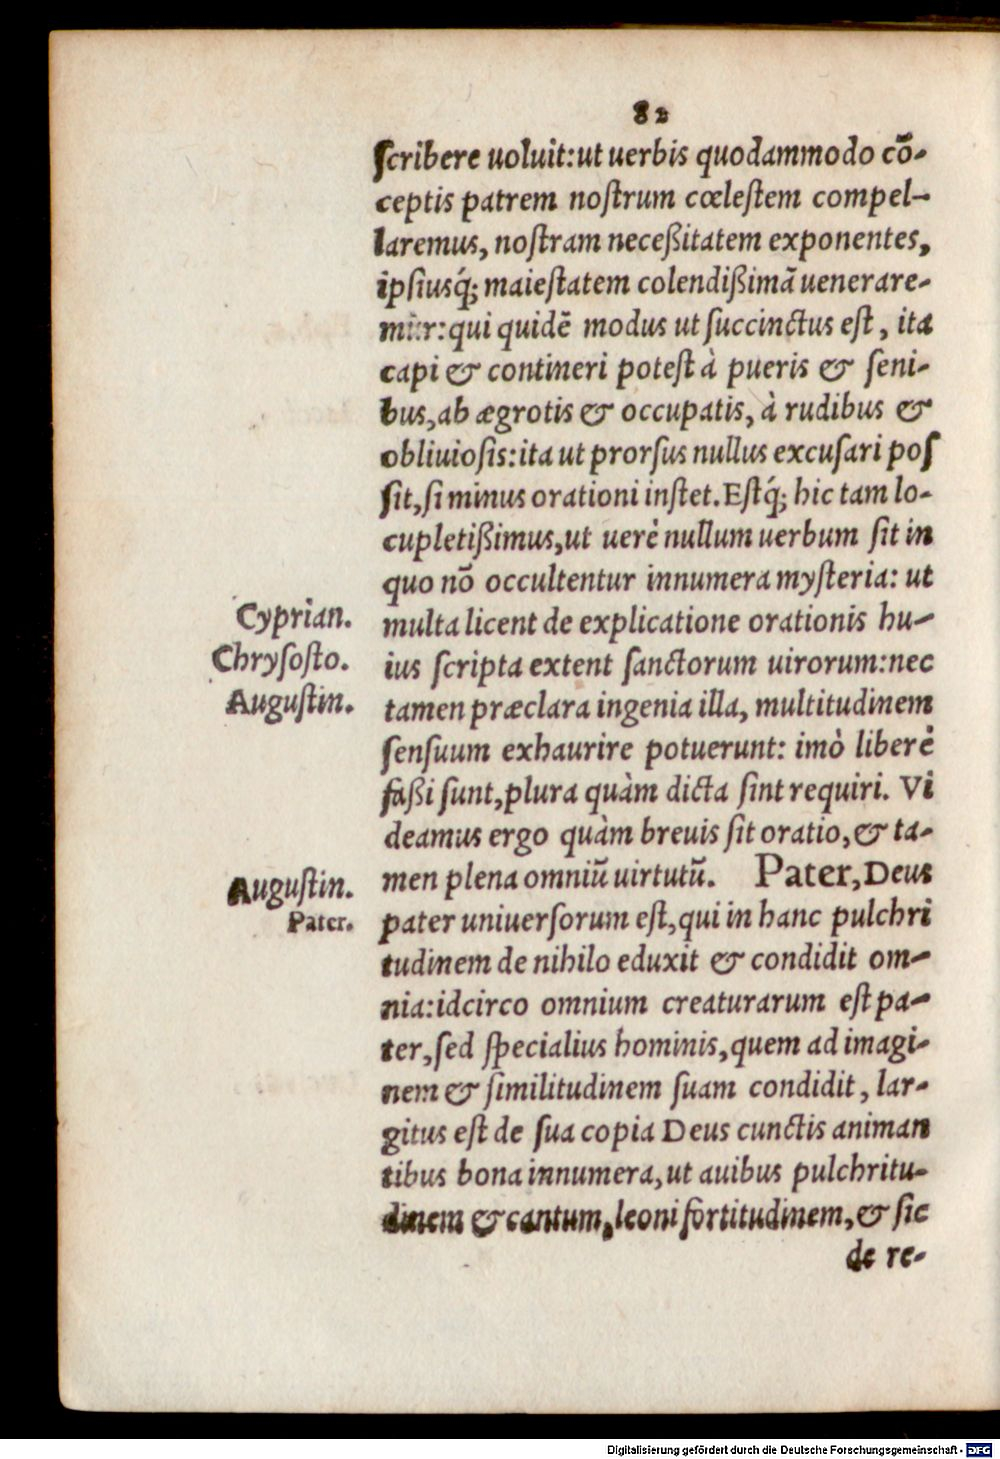 82
scribere uoluit: ut uerbis quodammodo cō-
ceptis patrem nostrum cœlestem compel-
laremus, nostram neceßitatem exponentes,
ipsiusq́; maiestatem colendißimā uenerare-
mur: qui quidē modus ut succinctus est, ita
capi & contineri potest à pueris & seni-
bus, ab ægrotis & occupatis, à rudibus &
obliuiosis: ita ut prorsus nullus excusari pos
sit, si minus orationi instet. Estq́; hic tam lo-
cupletißimus, ut uerè nullum uerbum sit in
quo nō occultentur innumera mysteria: ut
Cyprian.
multa licent de explicatione orationis hu-
Chrysosto.
ius scripta extent sanctorum uirorum: nec
Augustin.
tamen præclara ingenia illa, multitudinem
sensuum exhaurire potuerunt: imò liberè
faßi sunt, plura quàm dicta sint requiri. Vi
deamus ergo quàm breuis sit oratio, & ta-
Augustin.
men plena omniū uirtutū. Pater, Deus
Pater.
pater uniuersorum est, qui in hanc pulchri
tudinem de nihilo eduxit & condidit om-
nia: idcirco omnium creaturarum est pa-
ter, sed specialius hominis, quem ad imagi-
nem & similitudinem suam condidit, lar-
gitus est de sua copia Deus cunctis animan
tibus bona innumera, ut auibus pulchritu-
dinem & cantum, leoni fortitudinem, & sic
de re-
Digitalisierung gefördert durch die Deutsche Forschungsgemeinschaft - DFG